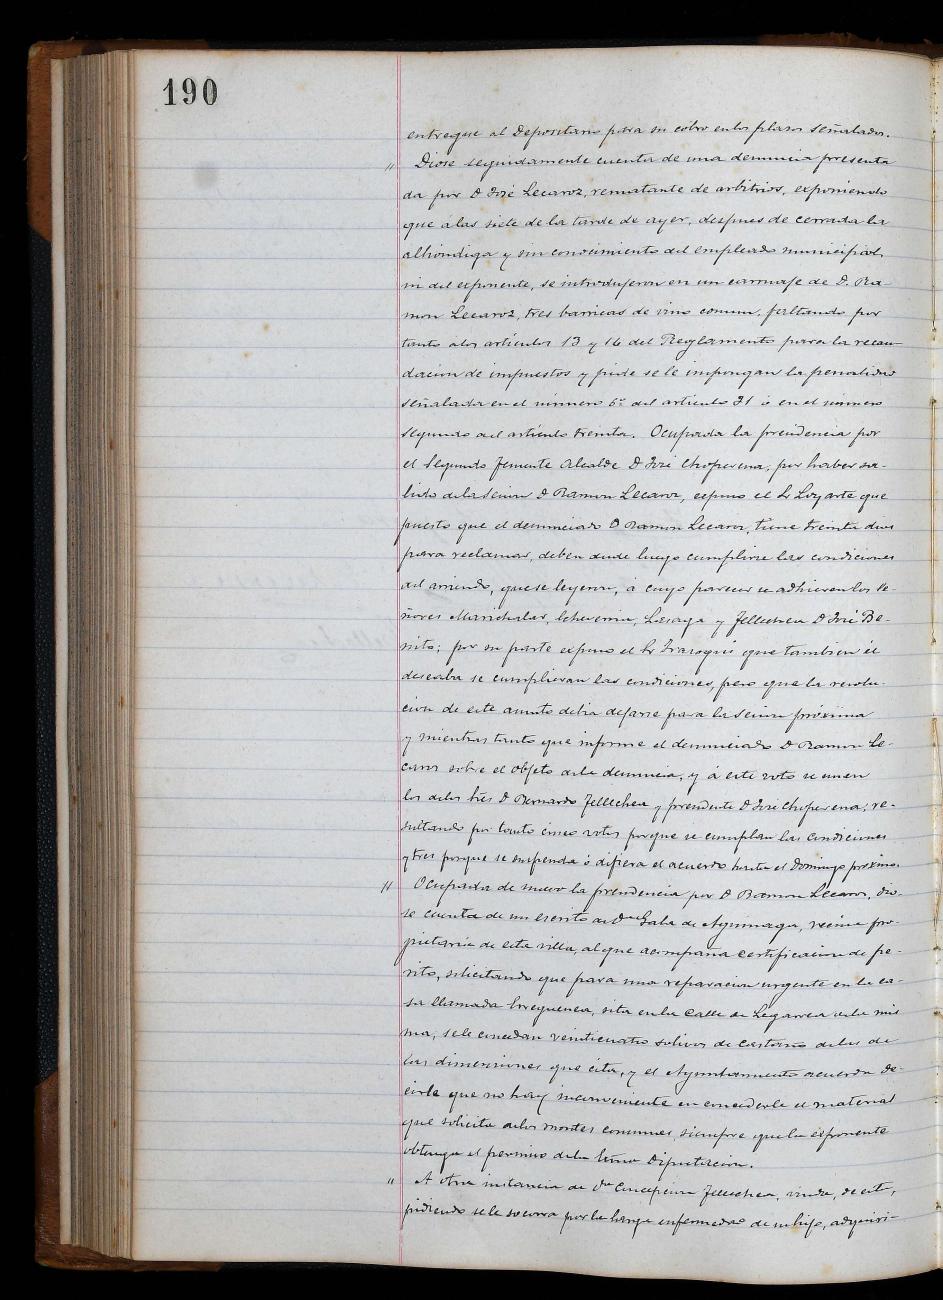 190
entregue al Depositario para su cobro en los plazos señalados.
" Diose seguidamente cuenta de una denuncia presenta
da por D José Lecaroz, rematante de arbitrios, exponiendo
que á las siete de la tarde de ayer, despues de cerrada la
alhondiga y sin conocimiento del empleado municipal,
ni del exponente, se introdujeron en un carruaje de D. Ra-
mon Lecaroz, tres barricas de vino comun, faltando por
tanto a los artículos 13 y 16 del Reglamento para la recau-
dacion de impuestos y pide se le impongan la penalidad
señalada en el número 6º del artículo 31 ó en el número
segundo del artículo treinta. Ocupada la presidencia por
el Segundo Teniente Alcalde D José Choperena, por haber sa-
lido de la sesion D Ramon Lecaroz, expuso el Sr Loyarte que
puesto que el denunciado D Ramon Lecaroz, tiene treinta dias
para reclamar, deben desde luego cumplirse las condiciones
del arriendo, que se leyeron, á cuyo parecer se adhieren los Se-
ñores Marichalar, Echeverria, Lasaga y Tellechea D José Be-
nito; por su parte expuso el Sr Irasoqui que tambien él
deseaba se cumplieran las condiciones, pero que la resolu-
cion de este asunto debia dejarse para la sesion próxima
y mientras tanto que informe el denunciado D Ramon Le-
caroz sobre el objeto de la denuncia, y á este voto se unen
los de los tres D Bernardo Tellechea y presidente D José Choperena; re-
sultando por tanto cinco votos porque se cumplan las condiciones
y tres porque se suspenda ó difiera el acuerdo hasta el Domingo próximo.
" Ocupada de nuevo la presidencia por D Ramon Lecaroz, dio-
se cuenta de un escrito de Dña Gala de Ayuinaga, vecina pro-
pietaria de esta villa, al que acompaña certificacion de pe-
rito, solicitando que para una reparacion urgente en la ca-
sa llamada Irreguenea, sita en la Calle de Legarrea de la mis
ma, se le concedan veinticuatro solivos de castaño de los de
las dimensiones que cita, y el Ayuntamiento acuerda de-
cirle que no hay inconveniente en concederle el material
que solicita de los montes comunes, siempre que la exponente
obtenga el permiso de la Excma Diputacion.
" A otra instancia de Dª Concepcion Tellechea, viuda, de est,
pidiendo se le socorra por la larga enfermedad de un hijo, adquiri-